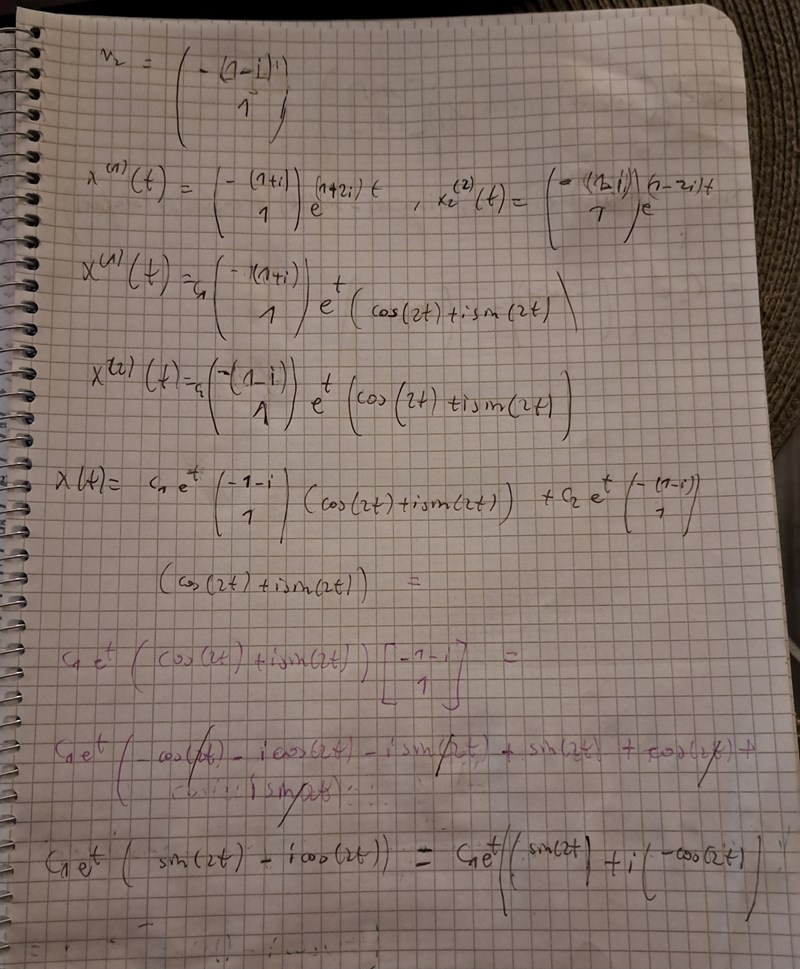 v₂ = (-(1-i) 1)
x⁽¹⁾(t) = (-(1+i) 1) e^(1+2i)t , x₂⁽²⁾(t) = (-(1-i) 1) e^(1-2i)t
x⁽¹⁾(t) = c₁ (-(1+i) 1) e^t (cos(2t) + i sin(2t))
x⁽²⁾(t) = c₂ (-(1-i) 1) e^t (cos(2t) + i sin(2t))
x(t) = c₁ e^t (-1-i 1) (cos(2t) + i sin(2t)) + c₂ e^t (-(1-i) 1)
(cos(2t) + i sin(2t)) =
c₁ e^t (cos(2t) + i sin(2t)) [-1-i 1] =
c₁ e^t (-cos(2t) - i cos(2t) - i sin(2t) + sin(2t) + cos(2t) +
i sin(2t)
c₁ e^t (sin(2t) - i cos(2t)) = c₁ e^t ((sin(2t) + i (-cos(2t))